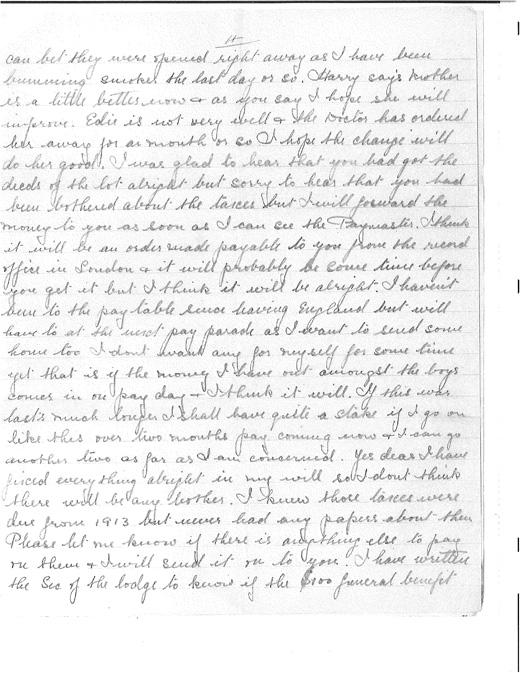 can bet they were opened right away as I have been
bumming smokes the last day or so. Harry says mother
is a little better now & as you say I hope she will
improve. Edie is not very well & the Doctor has ordered
her away for a month or so I hope the change will
do her good. I was glad to hear that you had got the
deeds of the lot alright but sorry to hear that you had
been bothered about the taxes but I will forward the
money to you as soon as I can see the Paymaster. I think
it will be an order made payable to you from the record
office in London & it will probably be some time before
you get it but I think it will be alright. I havent
been to the pay table since leaving England but will
have to at the next pay parade as I want to send some
home too I dont want any for myself for some time
yet that is if the money I have out amongst the boys
comes in on pay day & I think it will. If this war
lasts much longer I shall have quite a stake if I go on
like this over two months pay coming now & I can go
another two as far as I am concerned. Yes dear I have
fixed everything alright in my will so I dont think
there will be any bother. I knew those taxes were
due from 1913 but never had any papers about them
Please let me know if there is anything else to pay
on them & I will send it on to you. I have written
the Sec of the lodge to know if the $100 funeral benefit